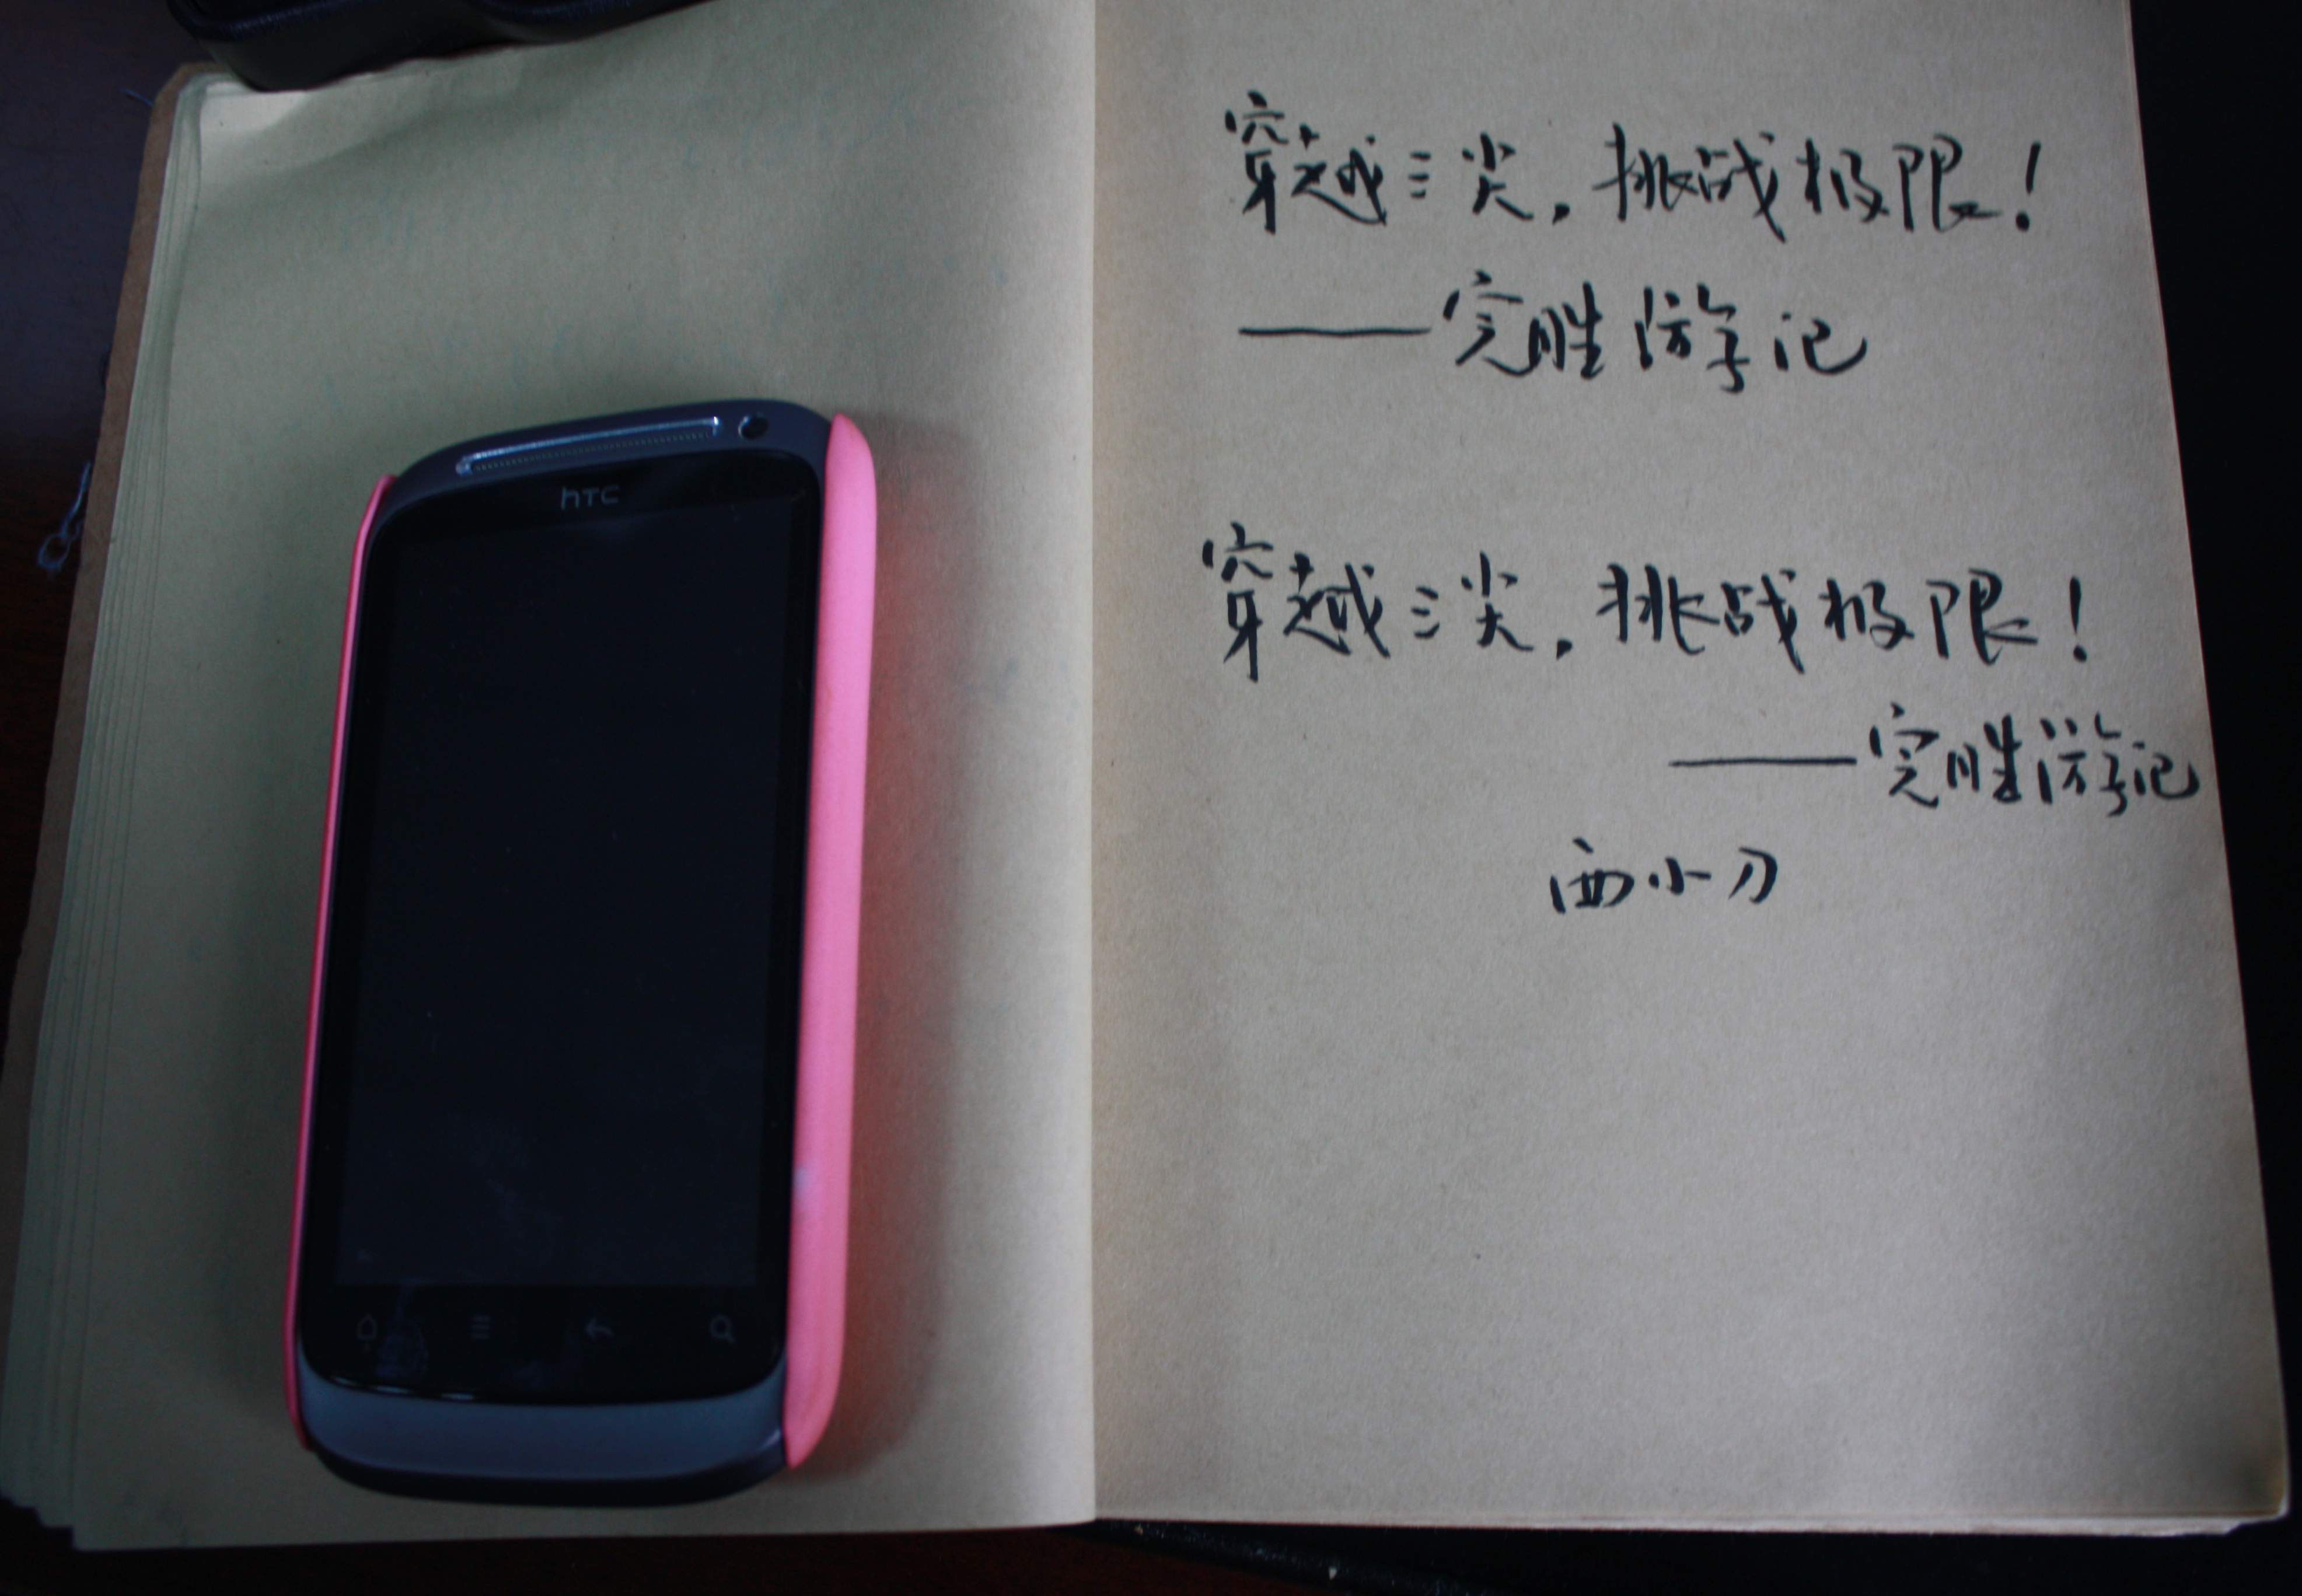 hTC
穿越三尖，挑战极限！
——完胜游记
穿越三尖，挑战极限！
——完胜游记
西小刀